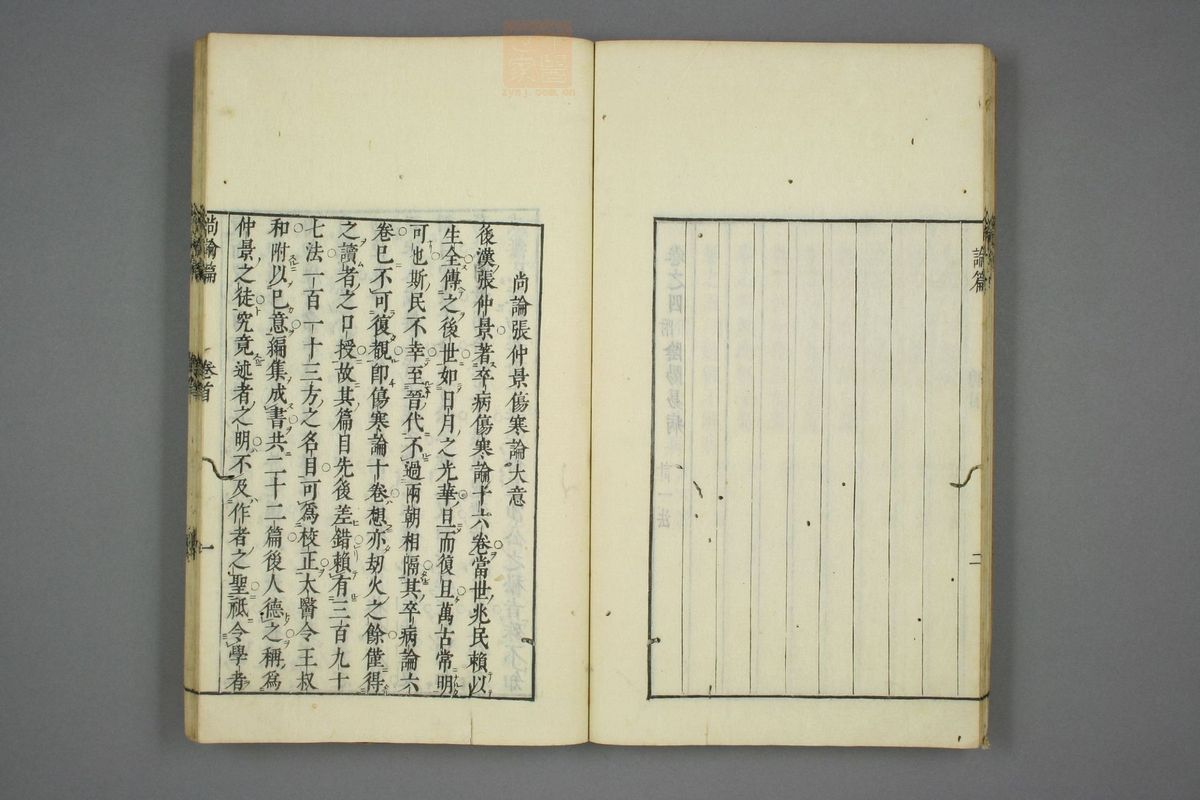 論篇
二
尚論張仲景傷寒論大意
後漢張仲景著卒病傷寒論十六卷當世兆民賴以
生全傳之後世如日月之光華旦而復旦萬古常明
可也斯民不幸至晉代不過兩朝相隔其卒病論六
卷已不可復覩即傷寒論十卷想亦劫火之餘僅得
之讀者之口授故其篇目先後差錯賴有三百九十
七法一百一十三方之名目可爲校正太醫令王叔
和附以已意編集成書共二十二篇後人德之稱爲
仲景之徒究竟述者之明不及作者之聖祗令學者
尚論篇
卷首
一
zysj.com.cn